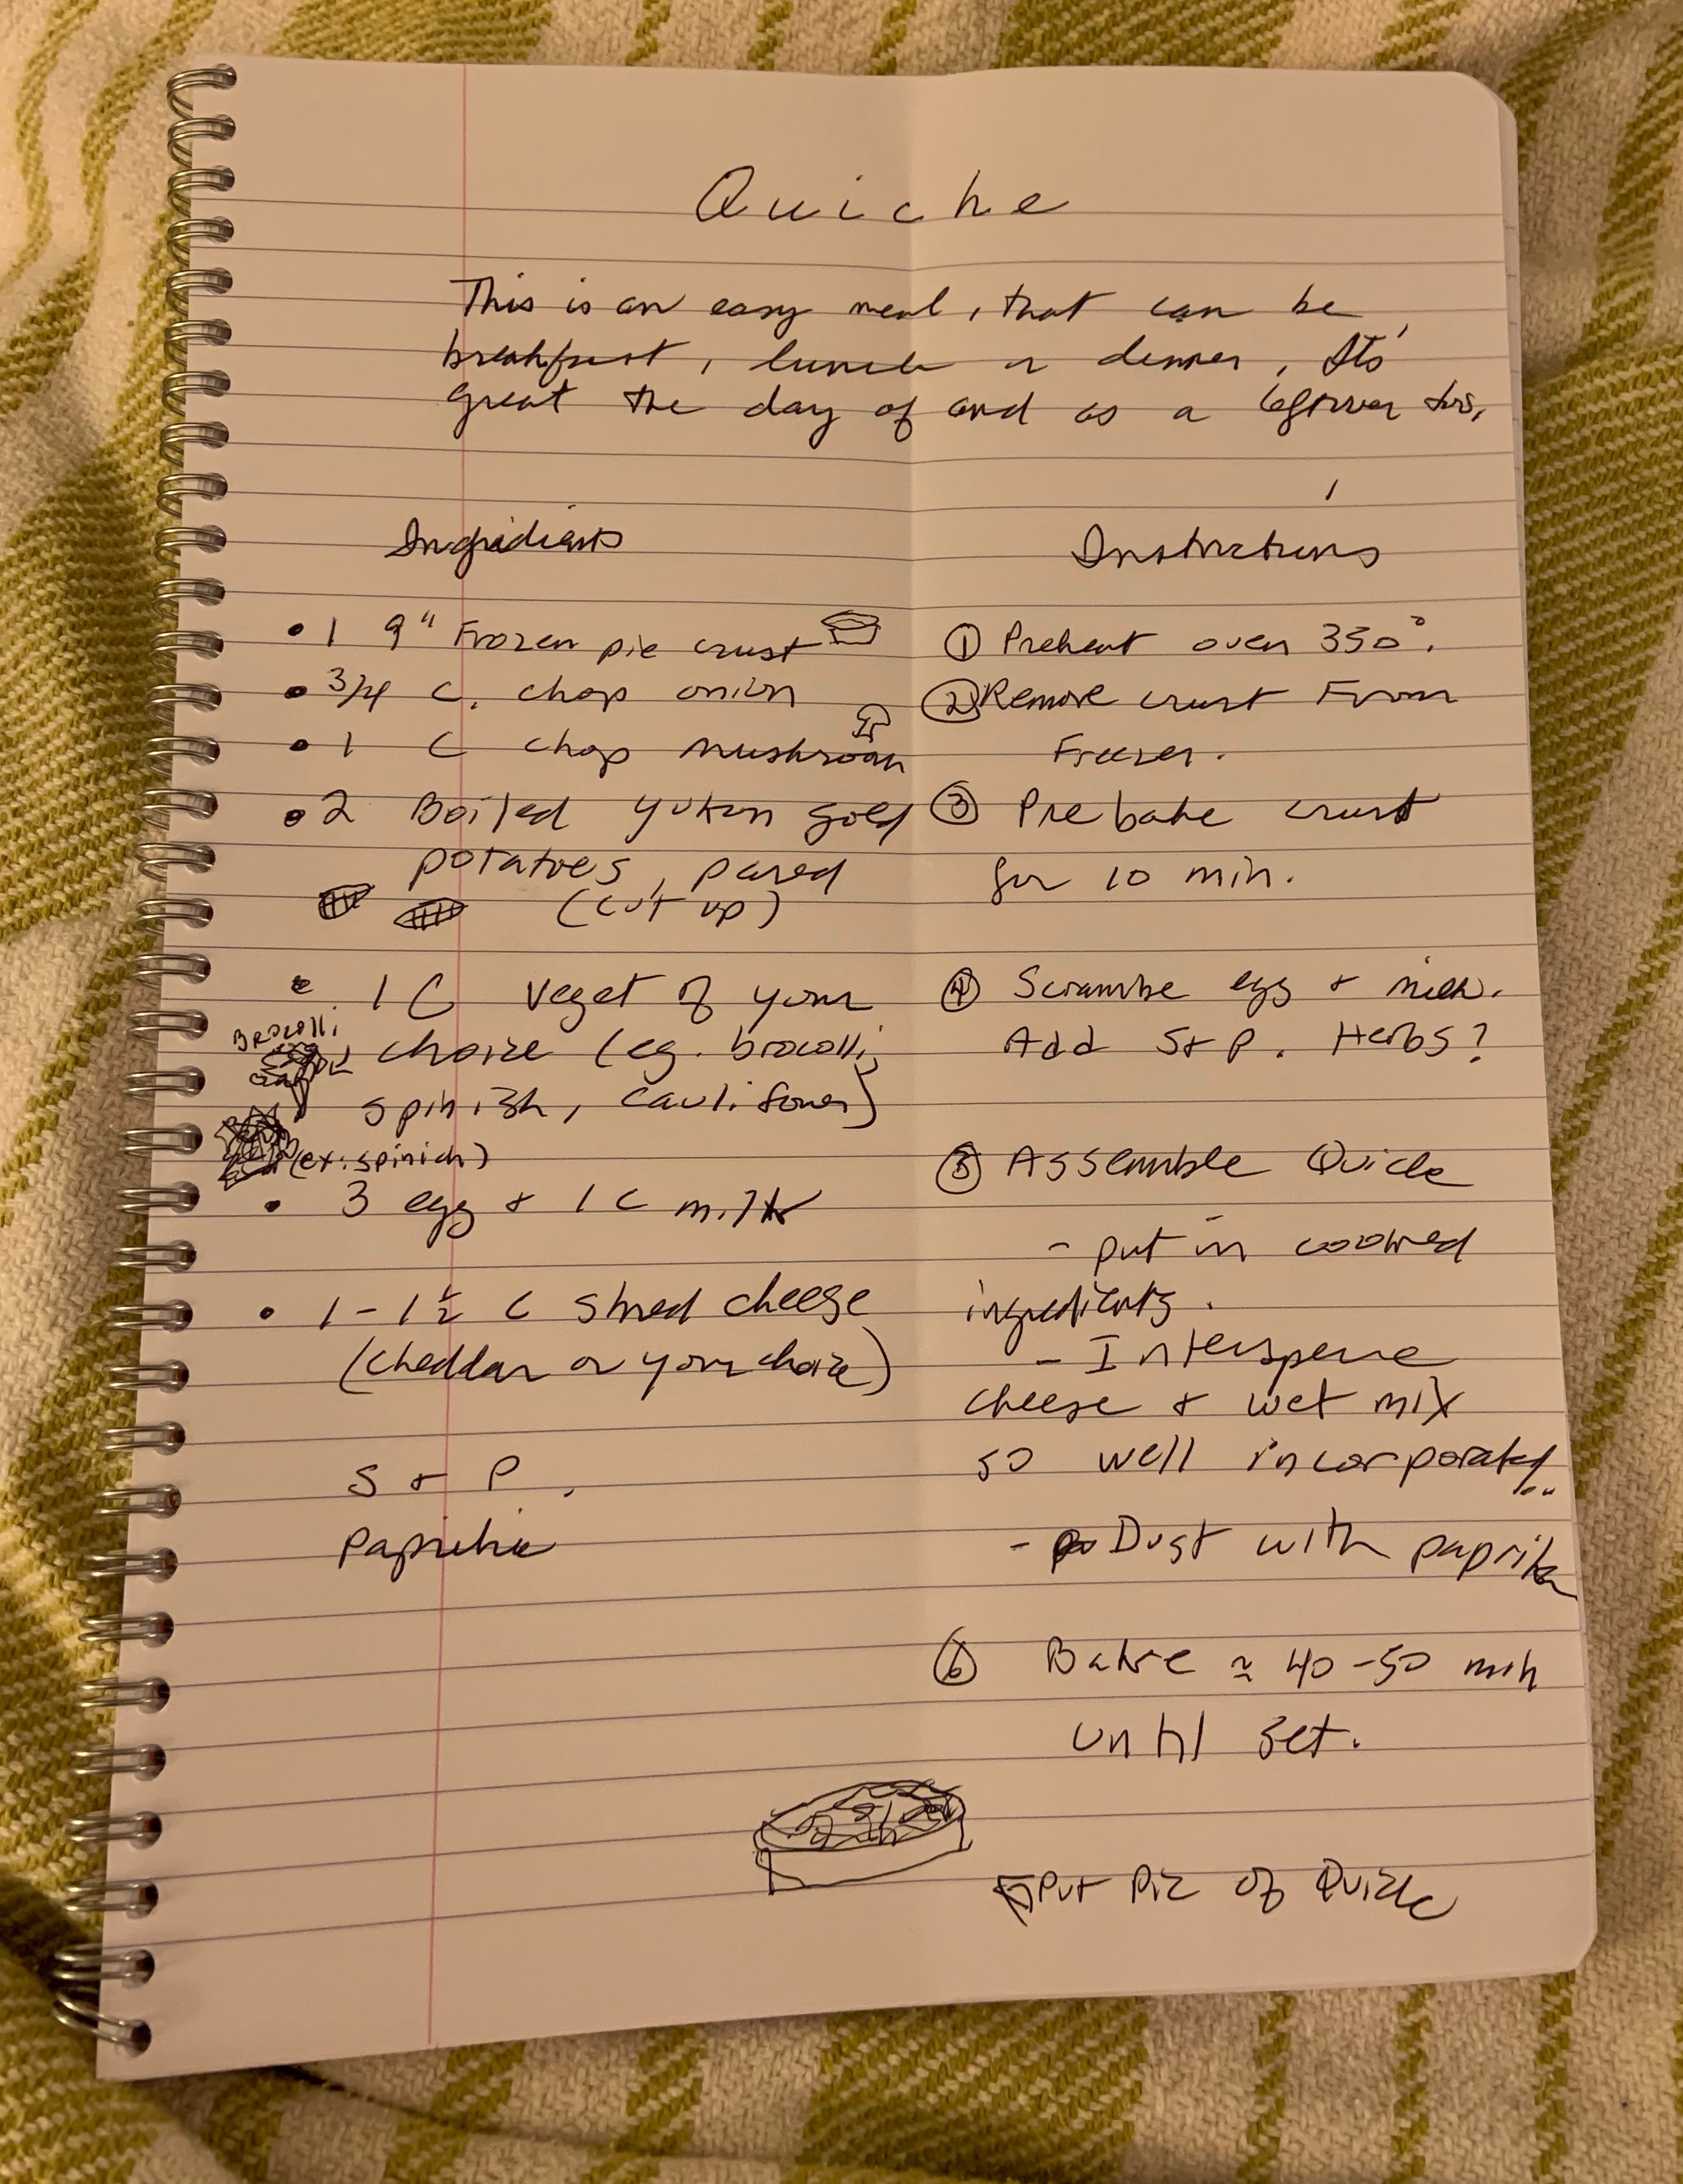 Quiche
This is an easy meal, that can be
breakfast, lunch or dinner. It's
great the day of and as a leftover too.
Ingridients
• 1 9" Frozen pie crust
• 3/4 C. chop onion
• 1 C chop mushroom
• 2 Boiled yukon gold
potatoes, pared
(cut up)
• 1 C veget of your
Brocolli
choice (eg. brocolli,
spinish, cauliflower)
(ex: spinich)
• 3 egg + 1 C milk
• 1 - 1 1/2 C shred cheese
(cheddar or your choice)
S + P.
Paprika
Instructions
① Preheat oven 350°.
② Remove crust From
Freezer.
③ Pre bake crust
for 10 min.
④ Scrambe egg + milk.
Add S + P. Herbs?
⑤ Assemble Quiche
- put in cooked
ingredients.
- Intersperse
cheese + wet mix
so well incorporated..
- Dust with paprika
⑥ Bake ≈ 40-50 min
until set.
Put Pic of Quiche